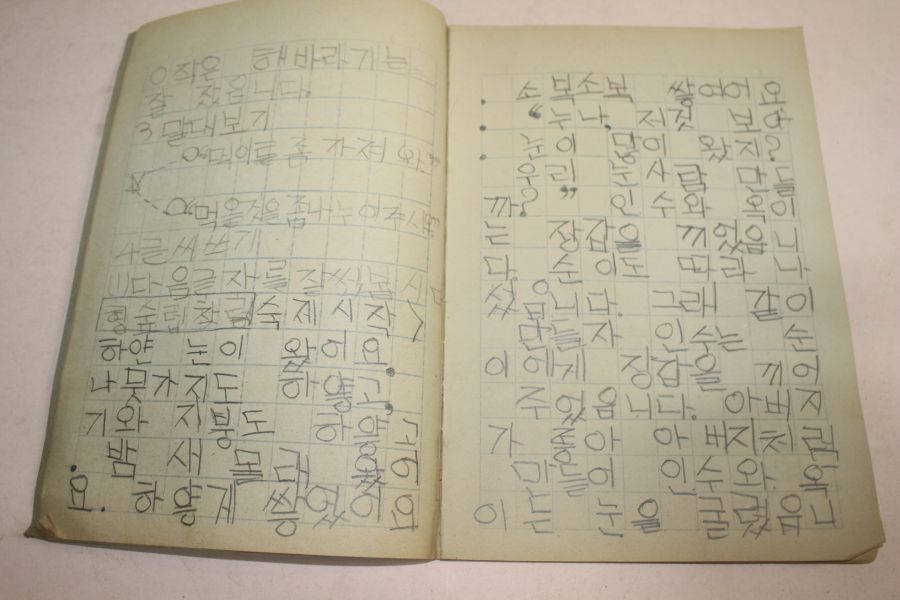 이 작은 해바라기는
잘 잤읍니다.
3 말대보기
"먹이를 좀 가져 와
"먹을것을 좀 나누어 주시
4 글씨 쓰기
(1) 다음 글자를 잘 씁
숙제 시작
하얀 눈이 왔어요
나뭇가지도 하얗고
기와 지붕도 하얗고
밤 새 몰
요. 하얗게
소복소복 쌓여어요
. "눈나. 저것 보아
. 눈이 많이 왔지?
우리 눈사람 만들
까?" 인수와 옥이
는 장갑을 끼었읍니
다. 순이도 따라 나
습니다. 그래 같이
만들자 인수는 순
이에게 장갑을 끼어
주었읍니다. 아버지
가 아 아버지처럼
인수와 옥
이는 눈을 굴렸읍니